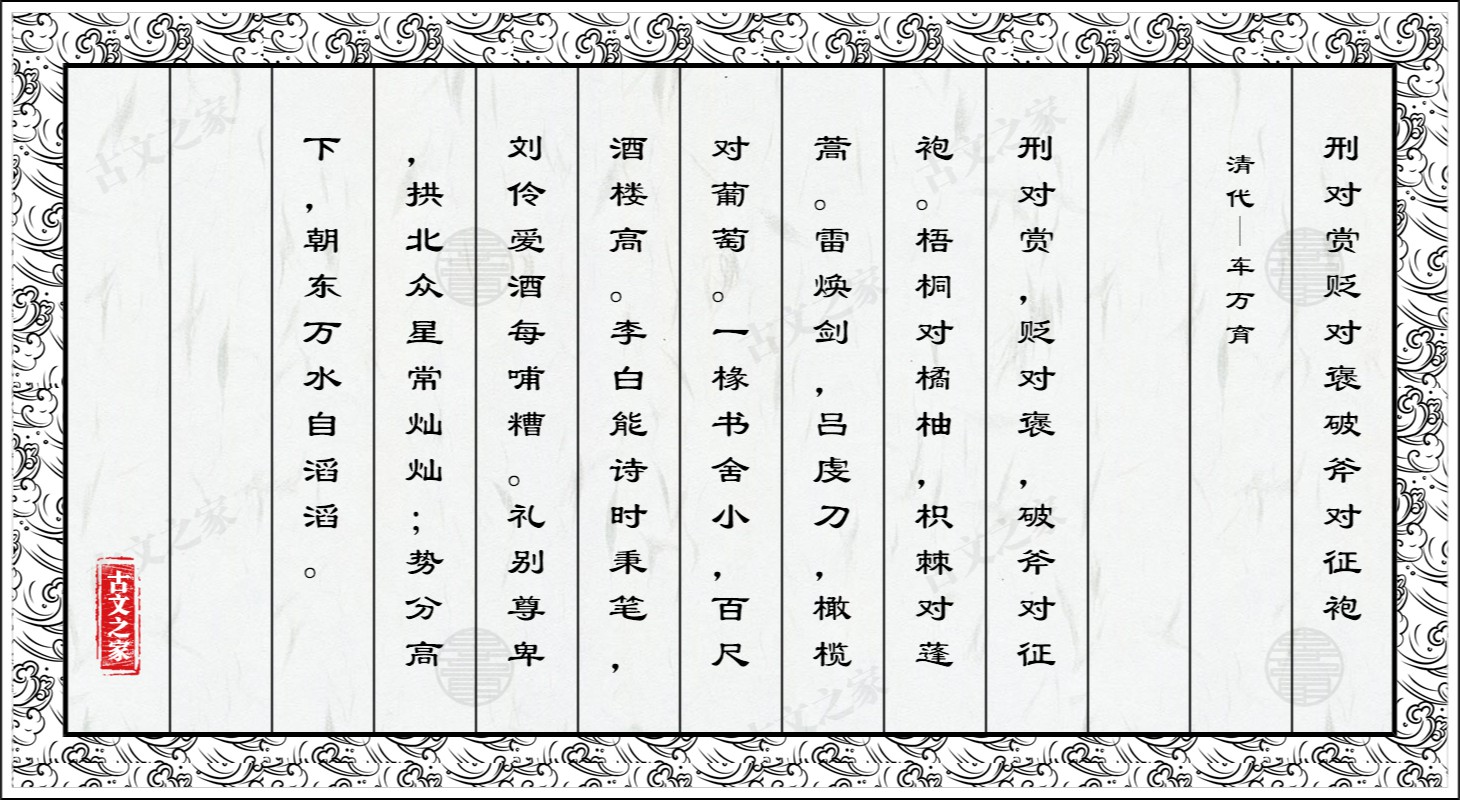 刑对赏贬对褒破斧对征袍
清代—车万育
刑对赏，贬对褒，破斧对征
袍。梧桐对橘柚，枳棘对蓬
蒿。雷焕剑，吕虔刀，橄榄
对葡萄。一椽书舍小，百尺
酒楼高。李白能诗时秉笔，
刘伶爱酒每哺糟。礼别尊卑
，拱北众星常灿灿；势分高
下，朝东万水自滔滔。
古文之家
古文之家
古文之家
古文之家
古文之家
古文之家
古文之家